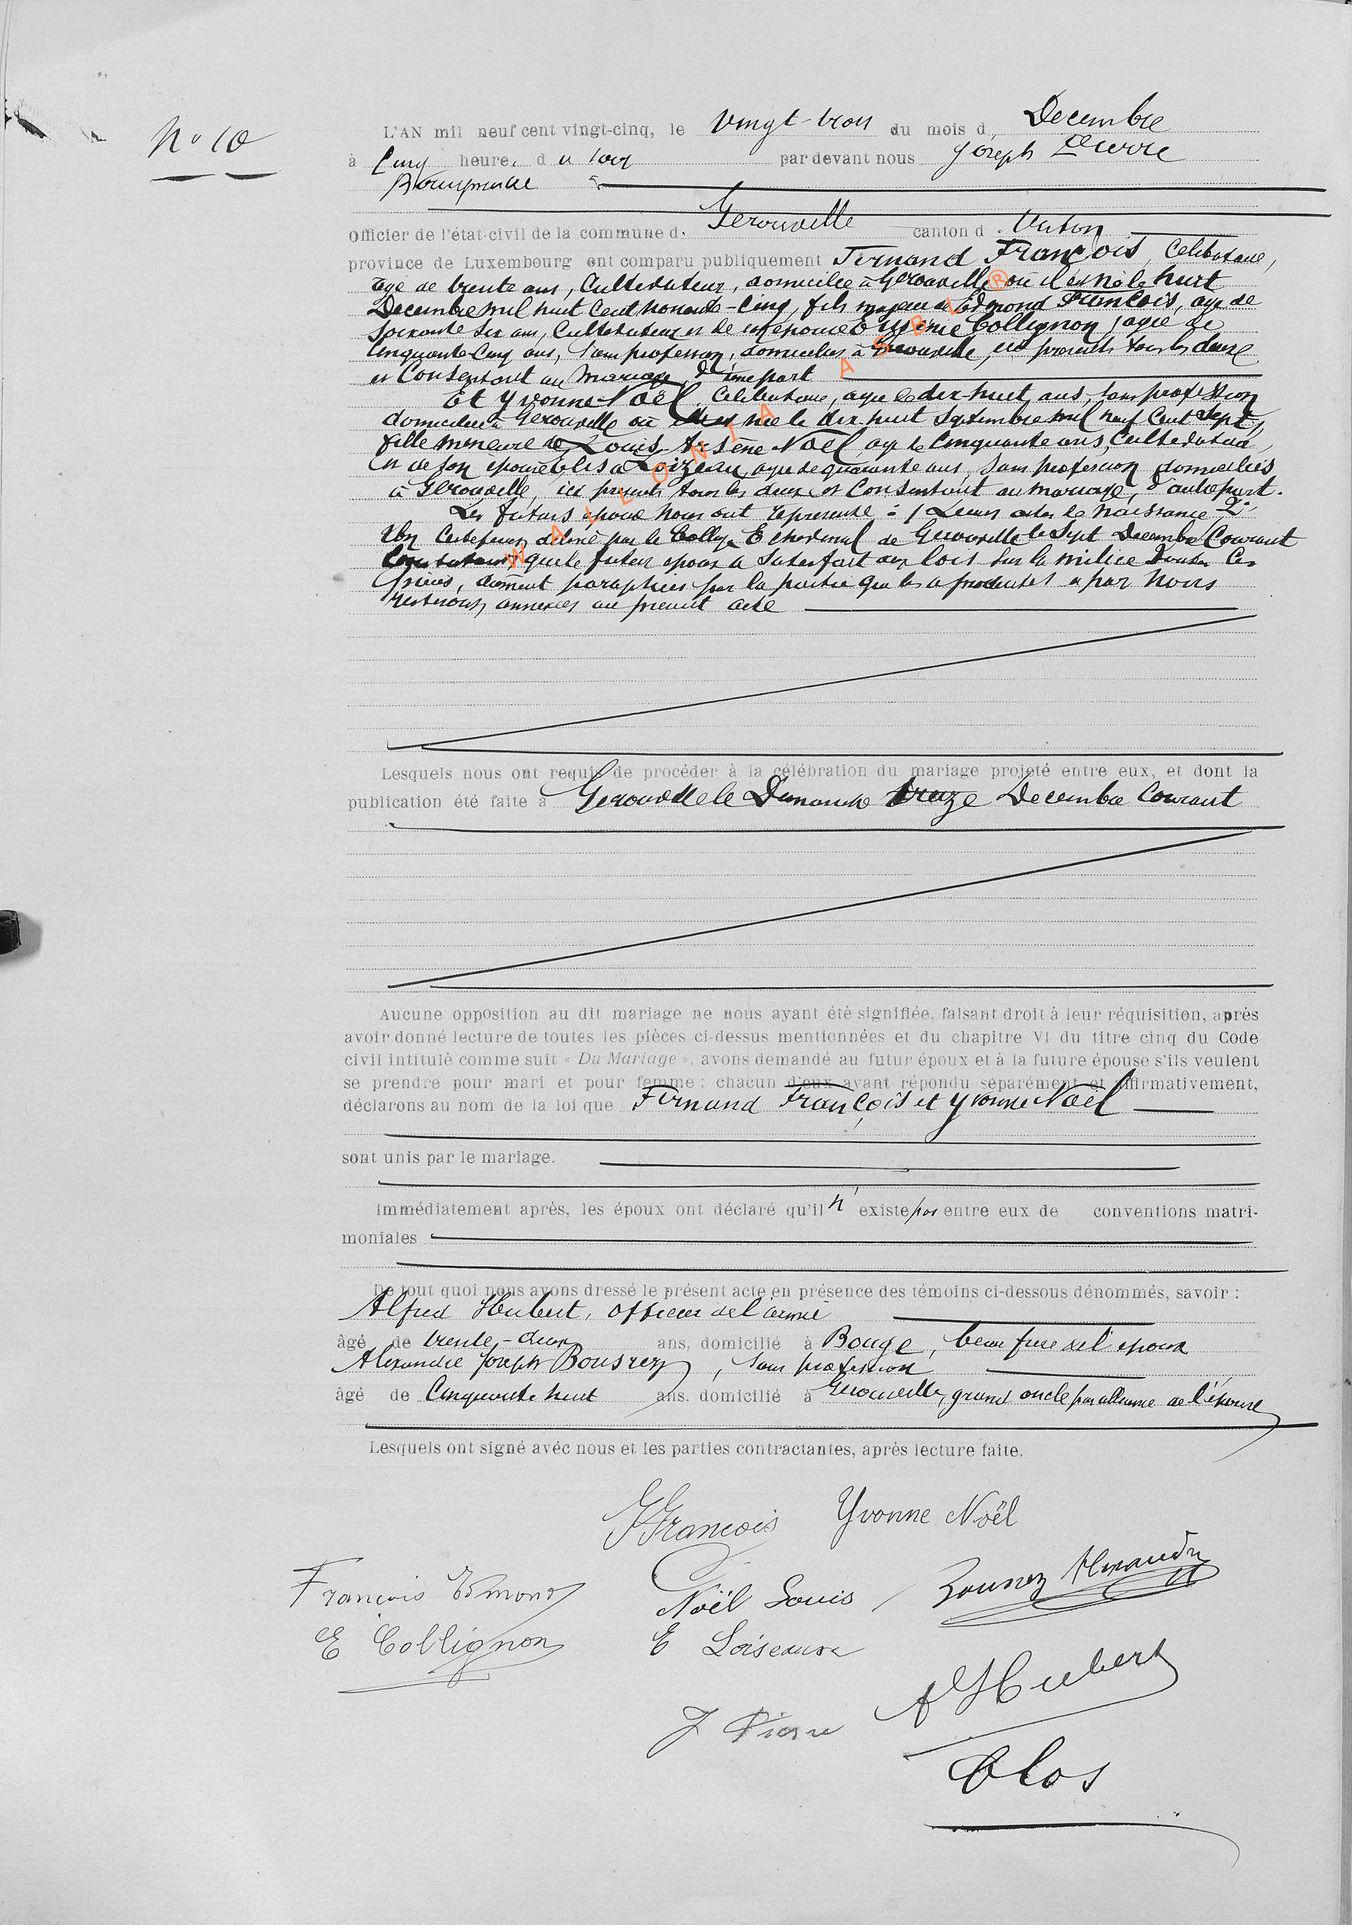 N° 10
L'AN mil neuf cent vingt-cinq, le vingt-trois du mois d Decembre
à Cinq heure, d u soir par devant nous Joseph Pierre
Bourgmestre
Officier de l'état-civil de la commune d. Gerouville canton d. Virton
province de Luxembourg ont comparu publiquement Fernand François, Celibataire,
age de trente ans, Cultivateur, domicilie à Gerouville où il est né le huit
Decembre mil huit Cent nonante-Cinq, fils majeur de Edmond François, age de
soixante six ans, Cultivateur et de son epouse Collignon, agée de
Cinquante Cinq ans, sans profession, domiciliés à Gerouville, ici presents tous les deux
et Consentant au mariage, d'une part
Et Yvonne Noël, Celibataire, agee de dix-huit ans, sans profession
domiciliée à Gerouville où elle est née le dix huit Septembre mil neuf Cent Sept,
fille mineure de Louis Arsène Noël, age de Cinquante ans, Cultivateur
et de son epouse Elisa Loizeau, agee de quarante ans, sans profession domiciliés
à Gerouville, ici presents tous les deux et Consentant au mariage, d'autre part.
Les futurs epoux nous ont représenté : 1 Leurs actes de naissance 2°
Un Certificat délivré par le College Echevinal de Gerouville le Sept Decembre Courant
que le futur epoux a satisfait aux lois sur la milice toutes Ces
pièces, dument paraphées par la partie qui les a produites et par nous
resteront annexées au présent acte
Lesquels nous ont requis de procéder à la célébration du mariage projeté entre eux, et dont la
publication été faite à Gerouville le Dimanche treize Decembre Courant
Aucune opposition au dit mariage ne nous ayant été signifiée, faisant droit à leur réquisition, après
avoir donné lecture de toutes les pièces ci-dessus mentionnées et du chapitre VI du titre cinq du Code
civil intitulé comme suit « Du Mariage », avons demandé au futur époux et à la future épouse s'ils veulent
se prendre pour mari et pour femme : chacun d'eux ayant répondu séparément et affirmativement,
déclarons au nom de la loi que Fernand François et Yvonne Noël
sont unis par le mariage.
Immédiatement après, les époux ont déclaré qu'il n' existe pas entre eux de conventions matri-
moniales
De tout quoi nous avons dressé le présent acte en présence des témoins ci-dessous dénommés, savoir :
Alfred Hubert, officier de l'armée
âgé de trente-deux ans, domicilié à Bouge, beau frere de l'epoux
Alexandre Joseph Bousrez, sans profession
âgé de Cinquante huit ans. domicilié à Gerouville, grand oncle par alliance de l'épouse
Lesquels ont signé avec nous et les parties contractantes, après lecture faite.
F François Yvonne Noël
François Edmond Noël Louis Bousrez Alexandre
E Collignon E Loiseaux
J Pierre A Hubert
Clos
WALLONIA ASBL ®